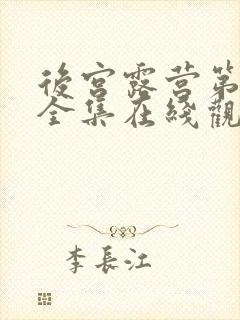 後宮露营第
全集在綫觀
李長江